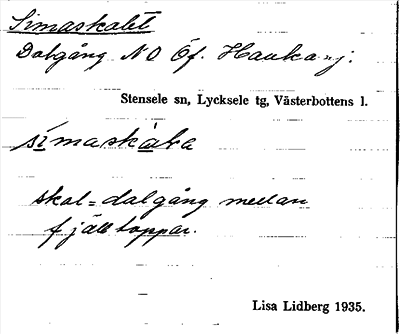 Simaskalet
Dalgång N O Öf. Hauka nj.
Stensele sn, Lycksele tg, Västerbottens l.
skal = dalgång mellan
fjälltoppar.
Lisa Lidberg 1935.